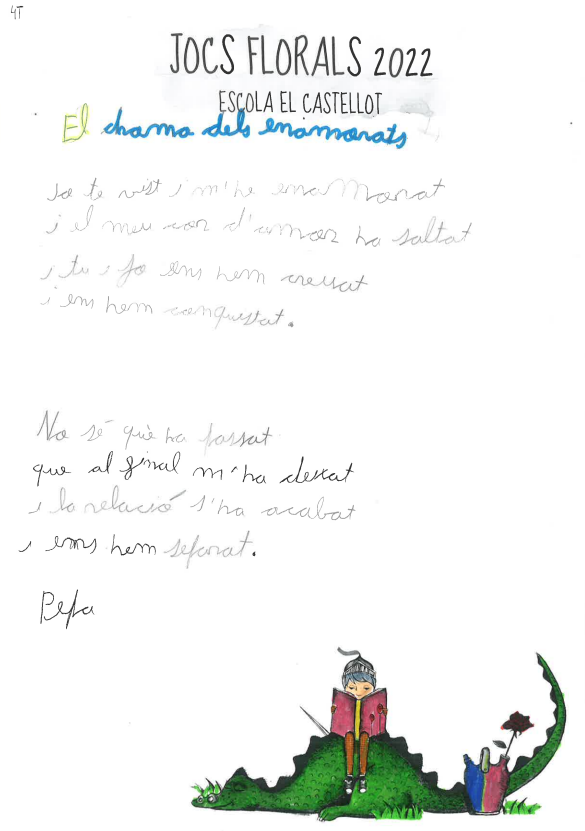 4T
JOCS FLORALS 2022
ESCOLA EL CASTELLOT
El drama dels enamorats
Jo te vist i m'he enamorat
i el meu cor d'amor ha saltat
i tu i jo ens hem creusat
i ens hem conquistat.
No sé què ha passat
que al final m'ha deixat
i la relació s'ha acabat
i ems hem separat.
Pepa